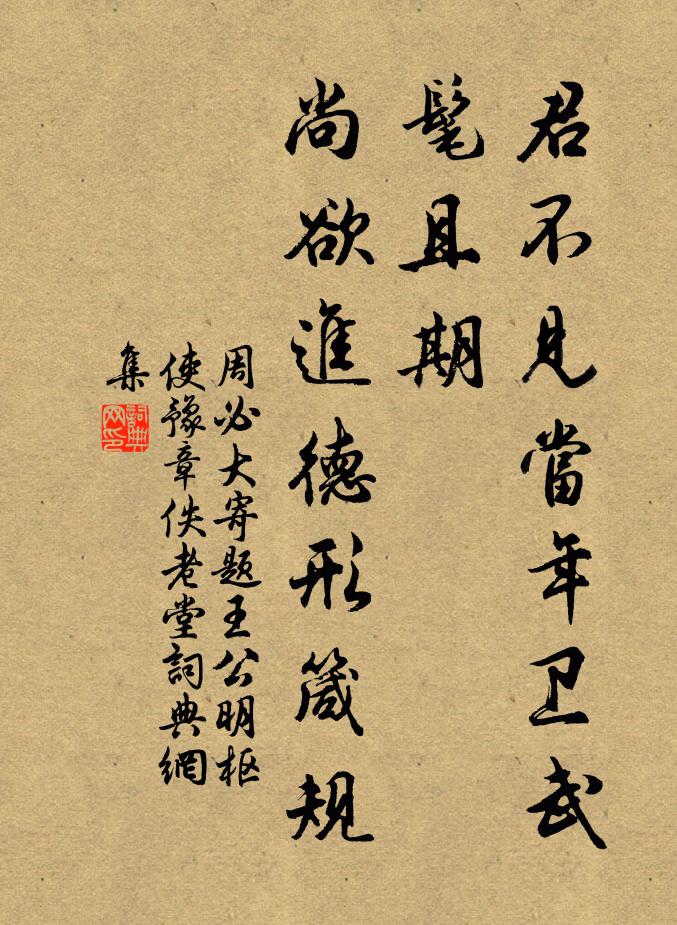 君不见當年卫武
髦且期
尚欲進德形箴規
周必大寄题王公明枢
使豫章佚老堂詞典網
集
詞典
网印